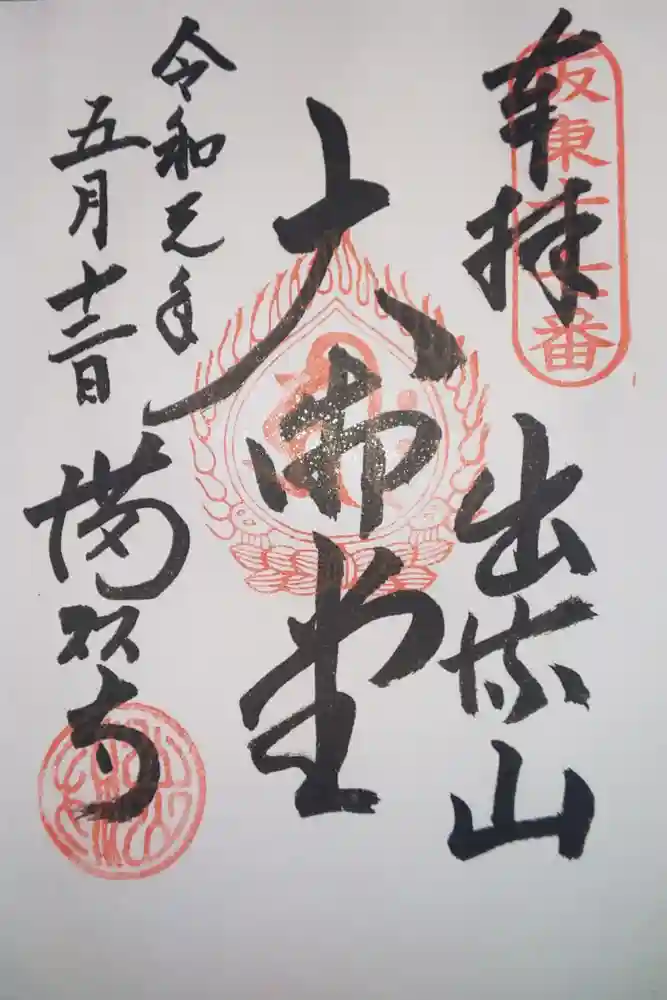 奉拝
坂東十七番
出流山
大御堂
令和元年
五月十三日
満願寺